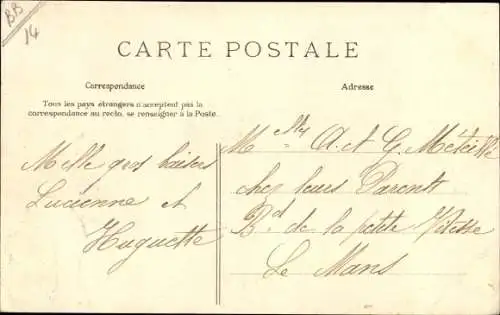 BB
14
CARTE POSTALE
Correspondance
Adresse
Tous les pays étrangers n'acceptent pas la
correspondance au recto, se renseigner à la Poste.
Mille gros baisers
Lucienne et
Huguette
M elles A. et G.
chez leurs Parents
B d de la petite Vitesse
Le Mans